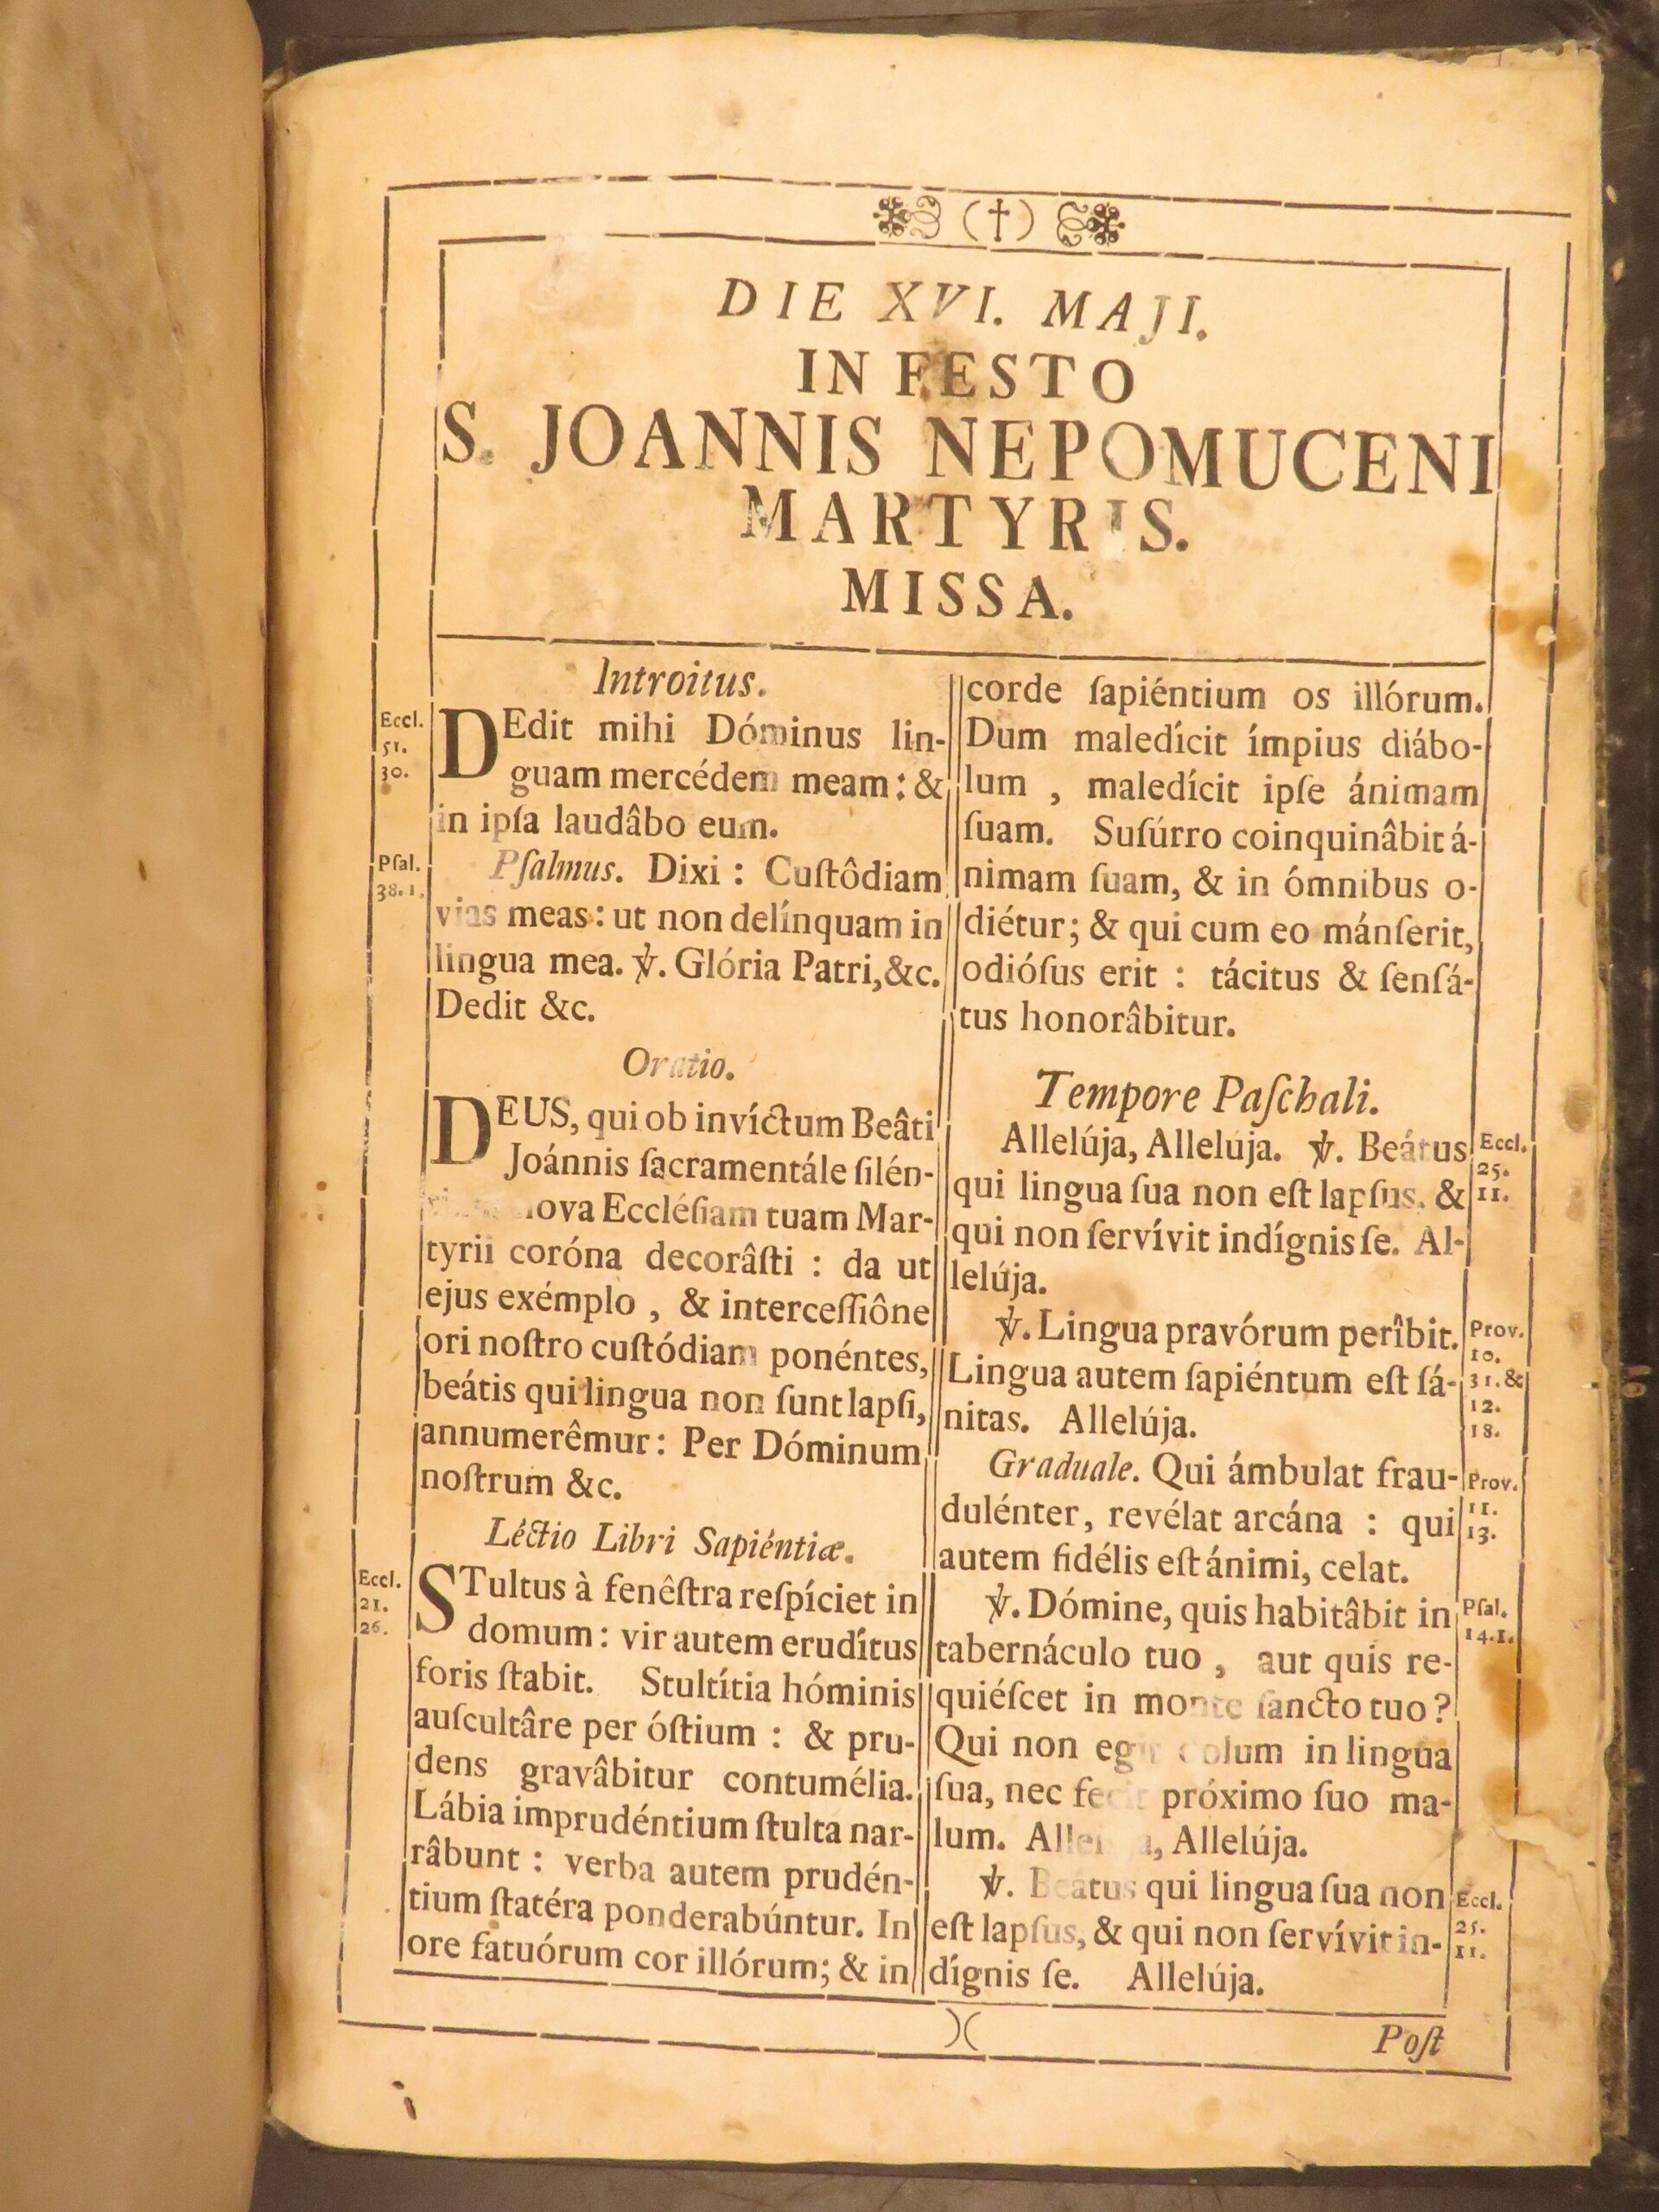 (†)
DIE XVI. MAJI.
IN FESTO
S. JOANNIS NEPOMUCENI
MARTYRIS.
MISSA.
Introitus.
Eccl.
51.
30.
DEdit mihi Dóminus lin-
guam mercédem meam: &
in ipſa laudâbo eum.
Pſal.
38.1.
Pſalmus. Dixi : Cuſtôdiam
vias meas: ut non delínquam in
lingua mea. ℣. Glória Patri,&c.
Dedit &c.
Oratio.
DEUS, qui ob invíctum Beâti
Joánnis ſacramentále ſilén-
Eccléſiam tuam Mar-
tyrii coróna decorâſti : da ut
ejus exémplo , & interceſſiône
ori noſtro cuſtódiam ponéntes,
beátis qui lingua non ſunt lapſi,
annumerêmur: Per Dóminum
noſtrum &c.
Léctio Libri Sapiéntiæ.
Eccl.
21.
26.
STultus à fenêſtra reſpíciet in
domum: vir autem erudítus
foris ſtabit. Stultítia hóminis
auſcultâre per óſtium : & pru-
dens gravâbitur contumélia.
Lábia imprudéntium ſtulta nar-
râbunt : verba autem prudén-
tium ſtatéra ponderabúntur. In
ore fatuórum cor illórum; & in
corde ſapiéntium os illórum.
Dum maledícit ímpius diábo-
lum , maledícit ipſe ánimam
ſuam. Suſúrro coinquinâbit á-
nimam ſuam, & in ómnibus o-
diétur; & qui cum eo mánſerit,
odióſus erit : tácitus & ſenſá-
tus honorâbitur.
Tempore Paſchali.
Allelúja, Allelúja. ℣. Beátus
qui lingua ſua non eſt lapſus, &
qui non ſervívit indígnis ſe. Al-
lelúja.
Eccl.
25.
11.
℣. Lingua pravórum perîbit.
Lingua autem ſapiéntum eſt ſá-
nitas. Allelúja.
Prov.
10.
31.&
12.
18.
Graduale. Qui ámbulat frau-
dulénter, revélat arcána : qui
autem fidélis eſt ánimi, celat.
Prov.
11.
13.
℣. Dómine, quis habitâbit in
tabernáculo tuo , aut quis re-
quiéſcet in monte ſancto tuo?
Qui non egit dolum in lingua
ſua, nec fecit próximo ſuo ma-
lum. Allelúja, Allelúja.
Pſal.
14.1.
℣. Beátus qui lingua ſua non
eſt lapſus, & qui non ſervívit in-
dígnis ſe. Allelúja.
Eccl.
25.
11.
)(
Poſt